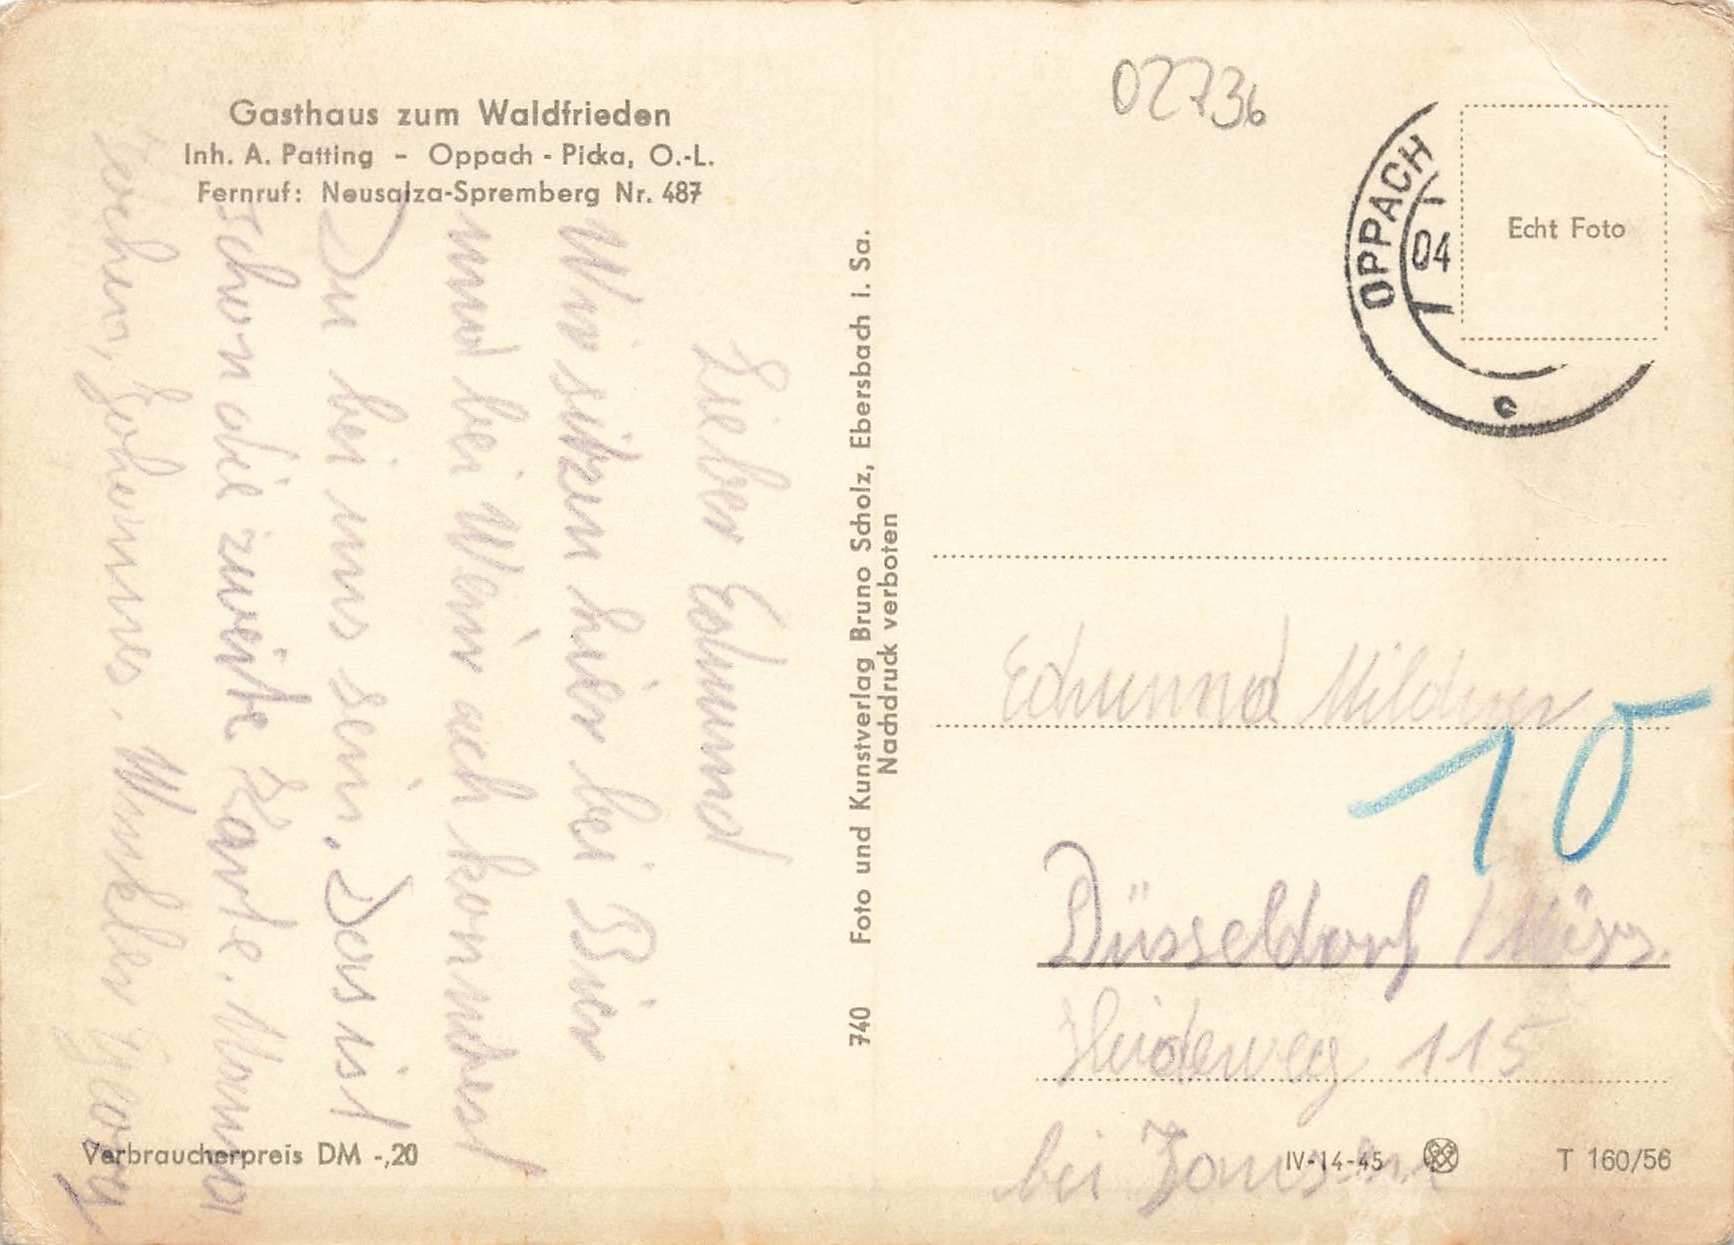 Gasthaus zum Waldfrieden
Inh. A. Patting – Oppach - Picka, O.-L.
Fernruf: Neusalza-Spremberg Nr. 487
Lieber Edmund
Wir sitzen hier bei Bier
und bei Wein ach konntest
Du bei uns sein. Das ist
schon die zweite Karte.
Jochen, Johannes.
Verbraucherpreis DM -,20
740 Foto und Kunstverlag Bruno Scholz, Ebersbach i. Sa.
Nachdruck verboten
02736
OPPACH
04
Echt Foto
Edmund
10
Düsseldorf
Heideweg 115
bei
IV-14-45
T 160/56